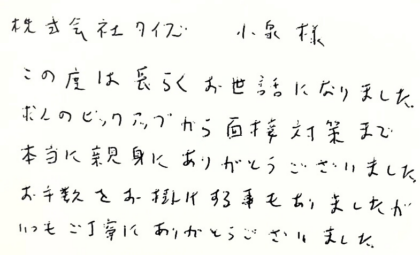 株式会社タイズ　小泉様
この度は長らくお世話になりました。
求人のピックアップから面接対策まで
本当に親身にありがとうございました。
お手数をお掛けする事もありましたが
いつもご丁寧にありがとうございました。